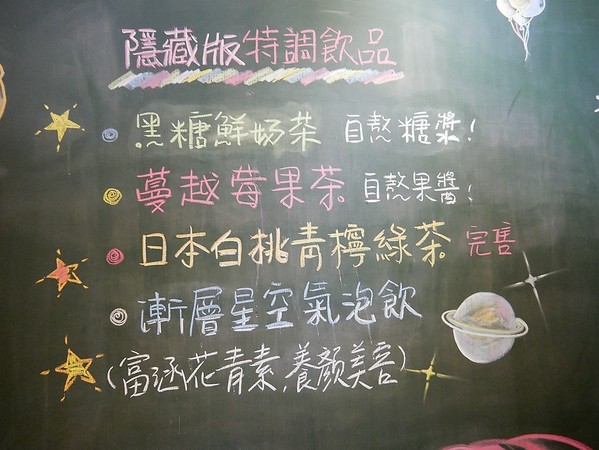 隱藏版特調飲品
黑糖鮮奶茶 自熬糖漿!
蔓越莓果茶 自熬果醬!
日本白桃青檸綠茶 完售
漸層星空氣泡飲
(富涵花青素,養顏美容)